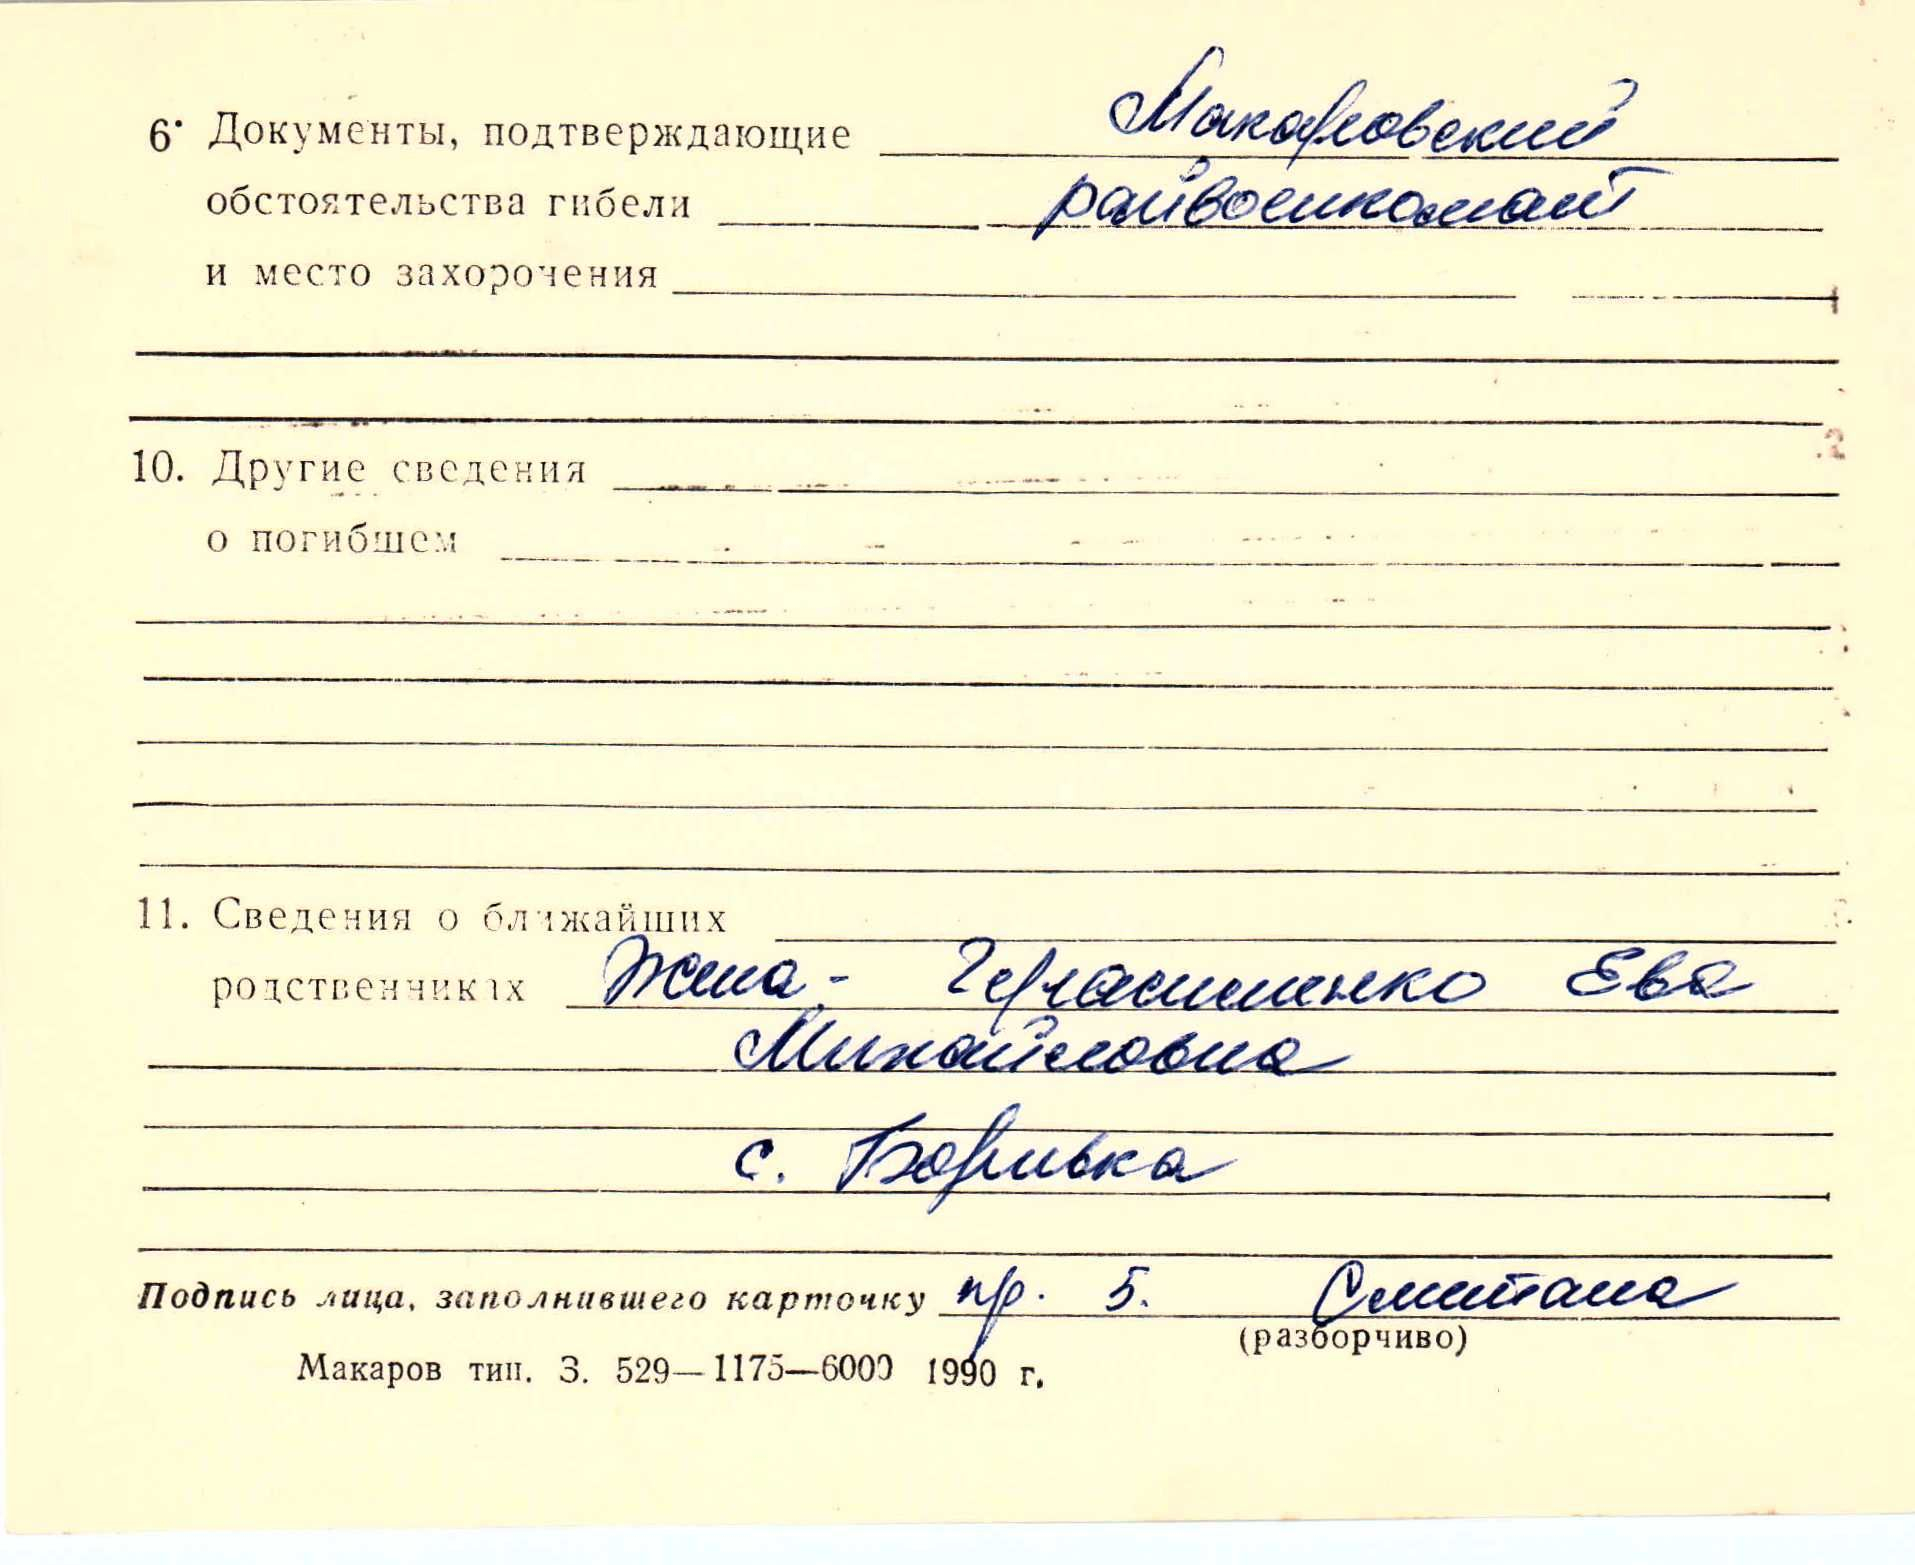 6. Документы, подтверждающие Макаровский
обстоятельства гибели райвоенкомат
и место захоронения
10. Другие сведения
о погибшем
11. Сведения о ближайших
родственниках Жена - Герасименко Ева
Михайловна
с. Боривка
Подпись лица, заполнившего карточку пр. 5. Сметана
(разборчиво)
Макаров тип. З. 529—1175—6000 1990 г.